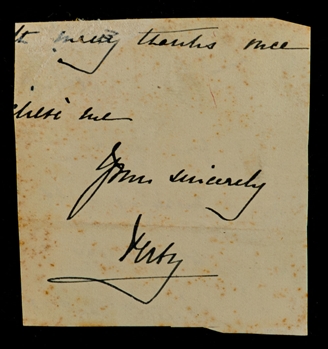 many thanks once
me
Yours sincerely
Derby